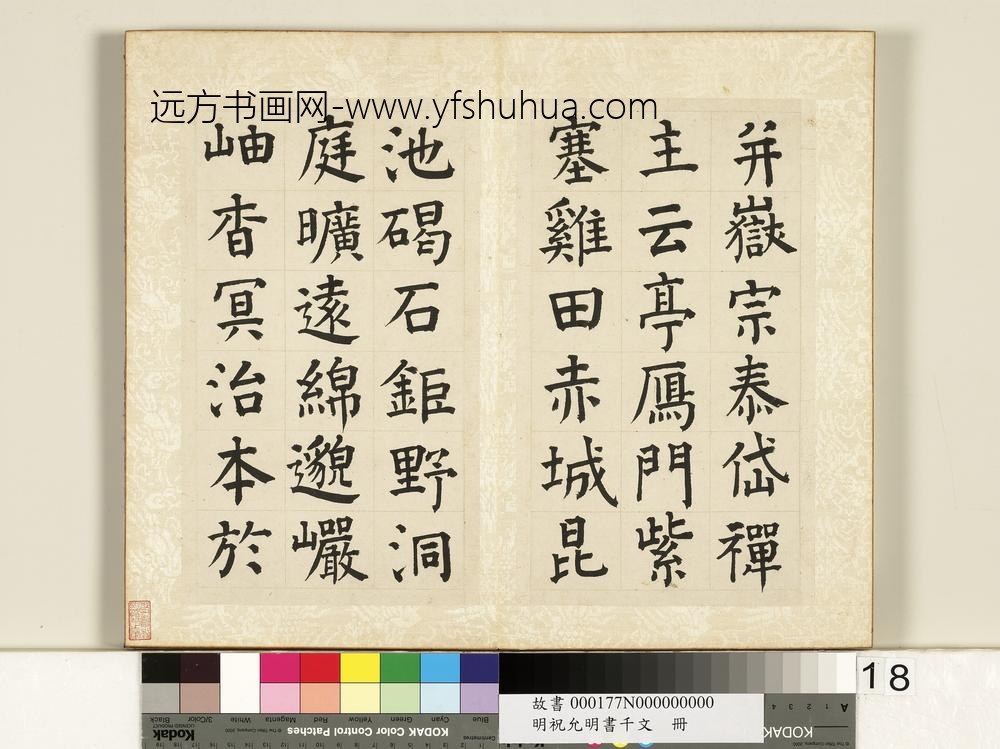 远方书画网-www.yfshuhua.com
并嶽宗泰岱禪
主云亭鴈門紫
塞雞田赤城昆
池碣石鉅野洞
庭曠遠綿邈巖
岫杳冥治本於
18
故書 000177N000000000
明祝允明書千文 冊
Black
3/Color
White
Magenta
Red
Yellow
Green
Cyan
Blue
Kodak
KODAK Color Control Patches
Centimetres
KODAK
A